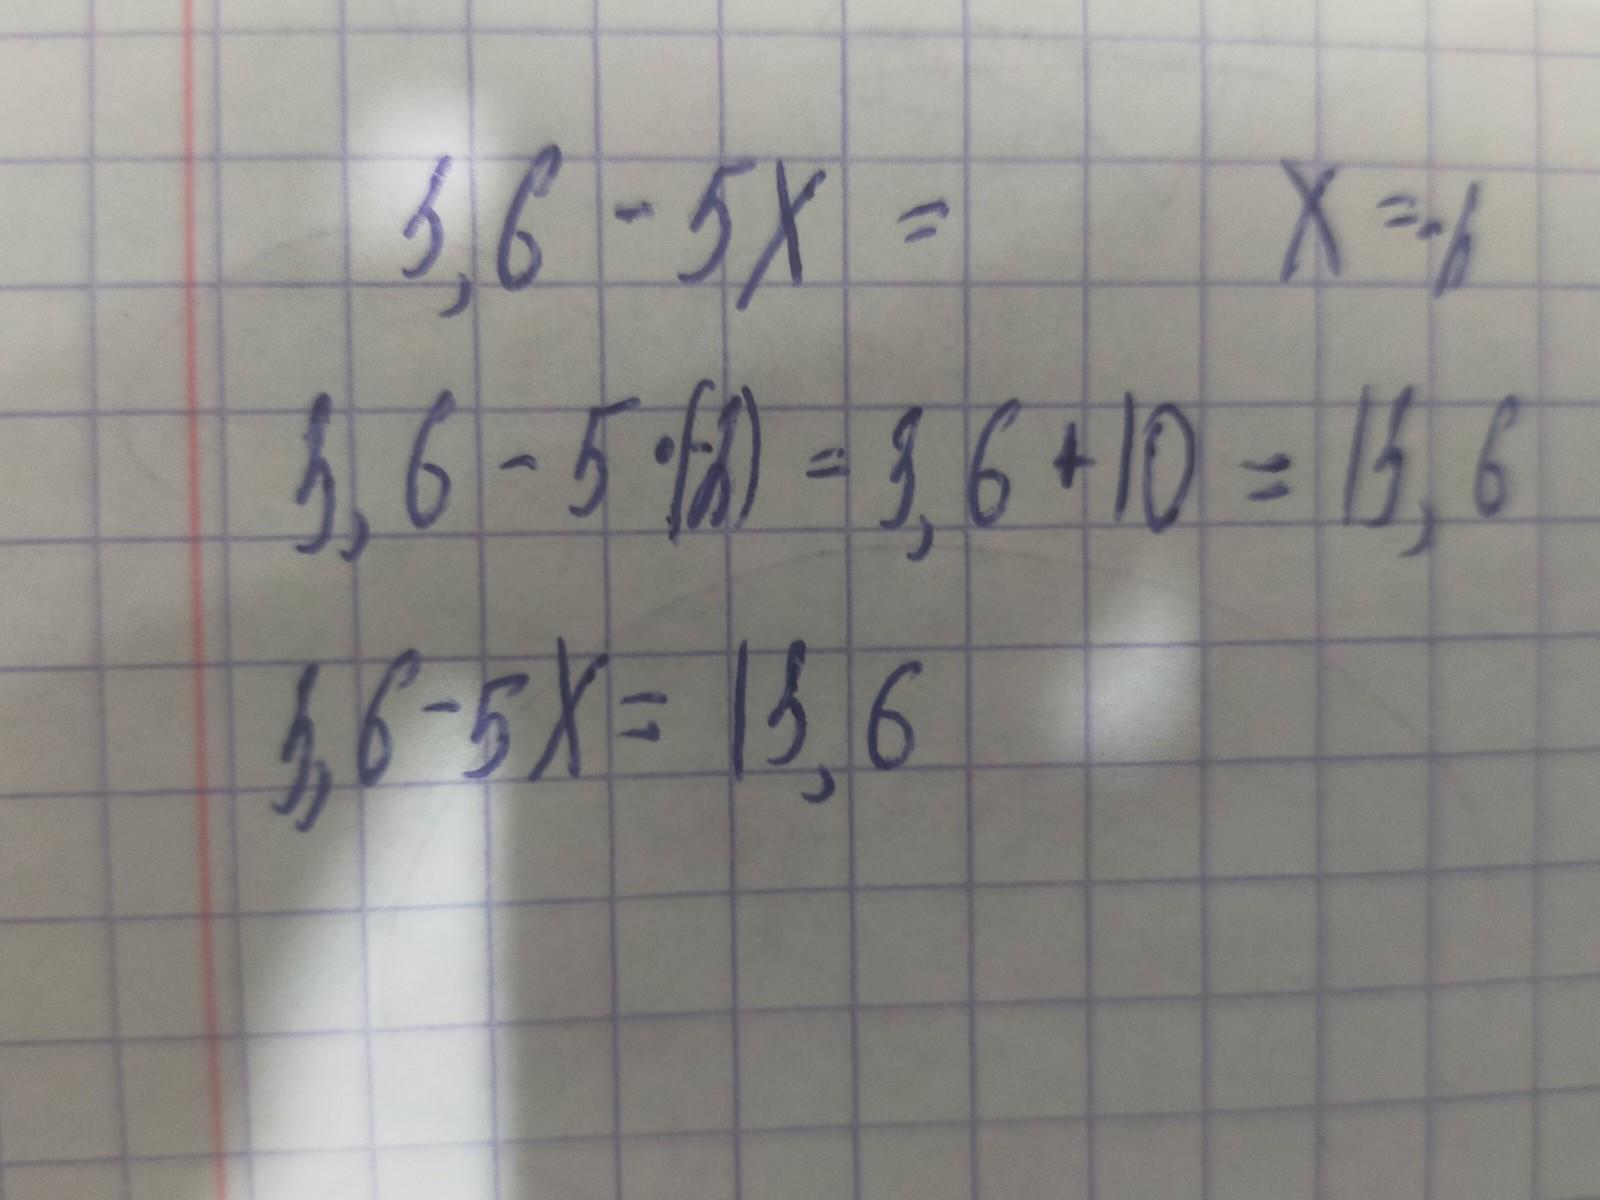 3,6 - 5x = x = -2
3,6 - 5 · (-2) = 3,6 + 10 = 13,6
3,6 - 5x = 13,6